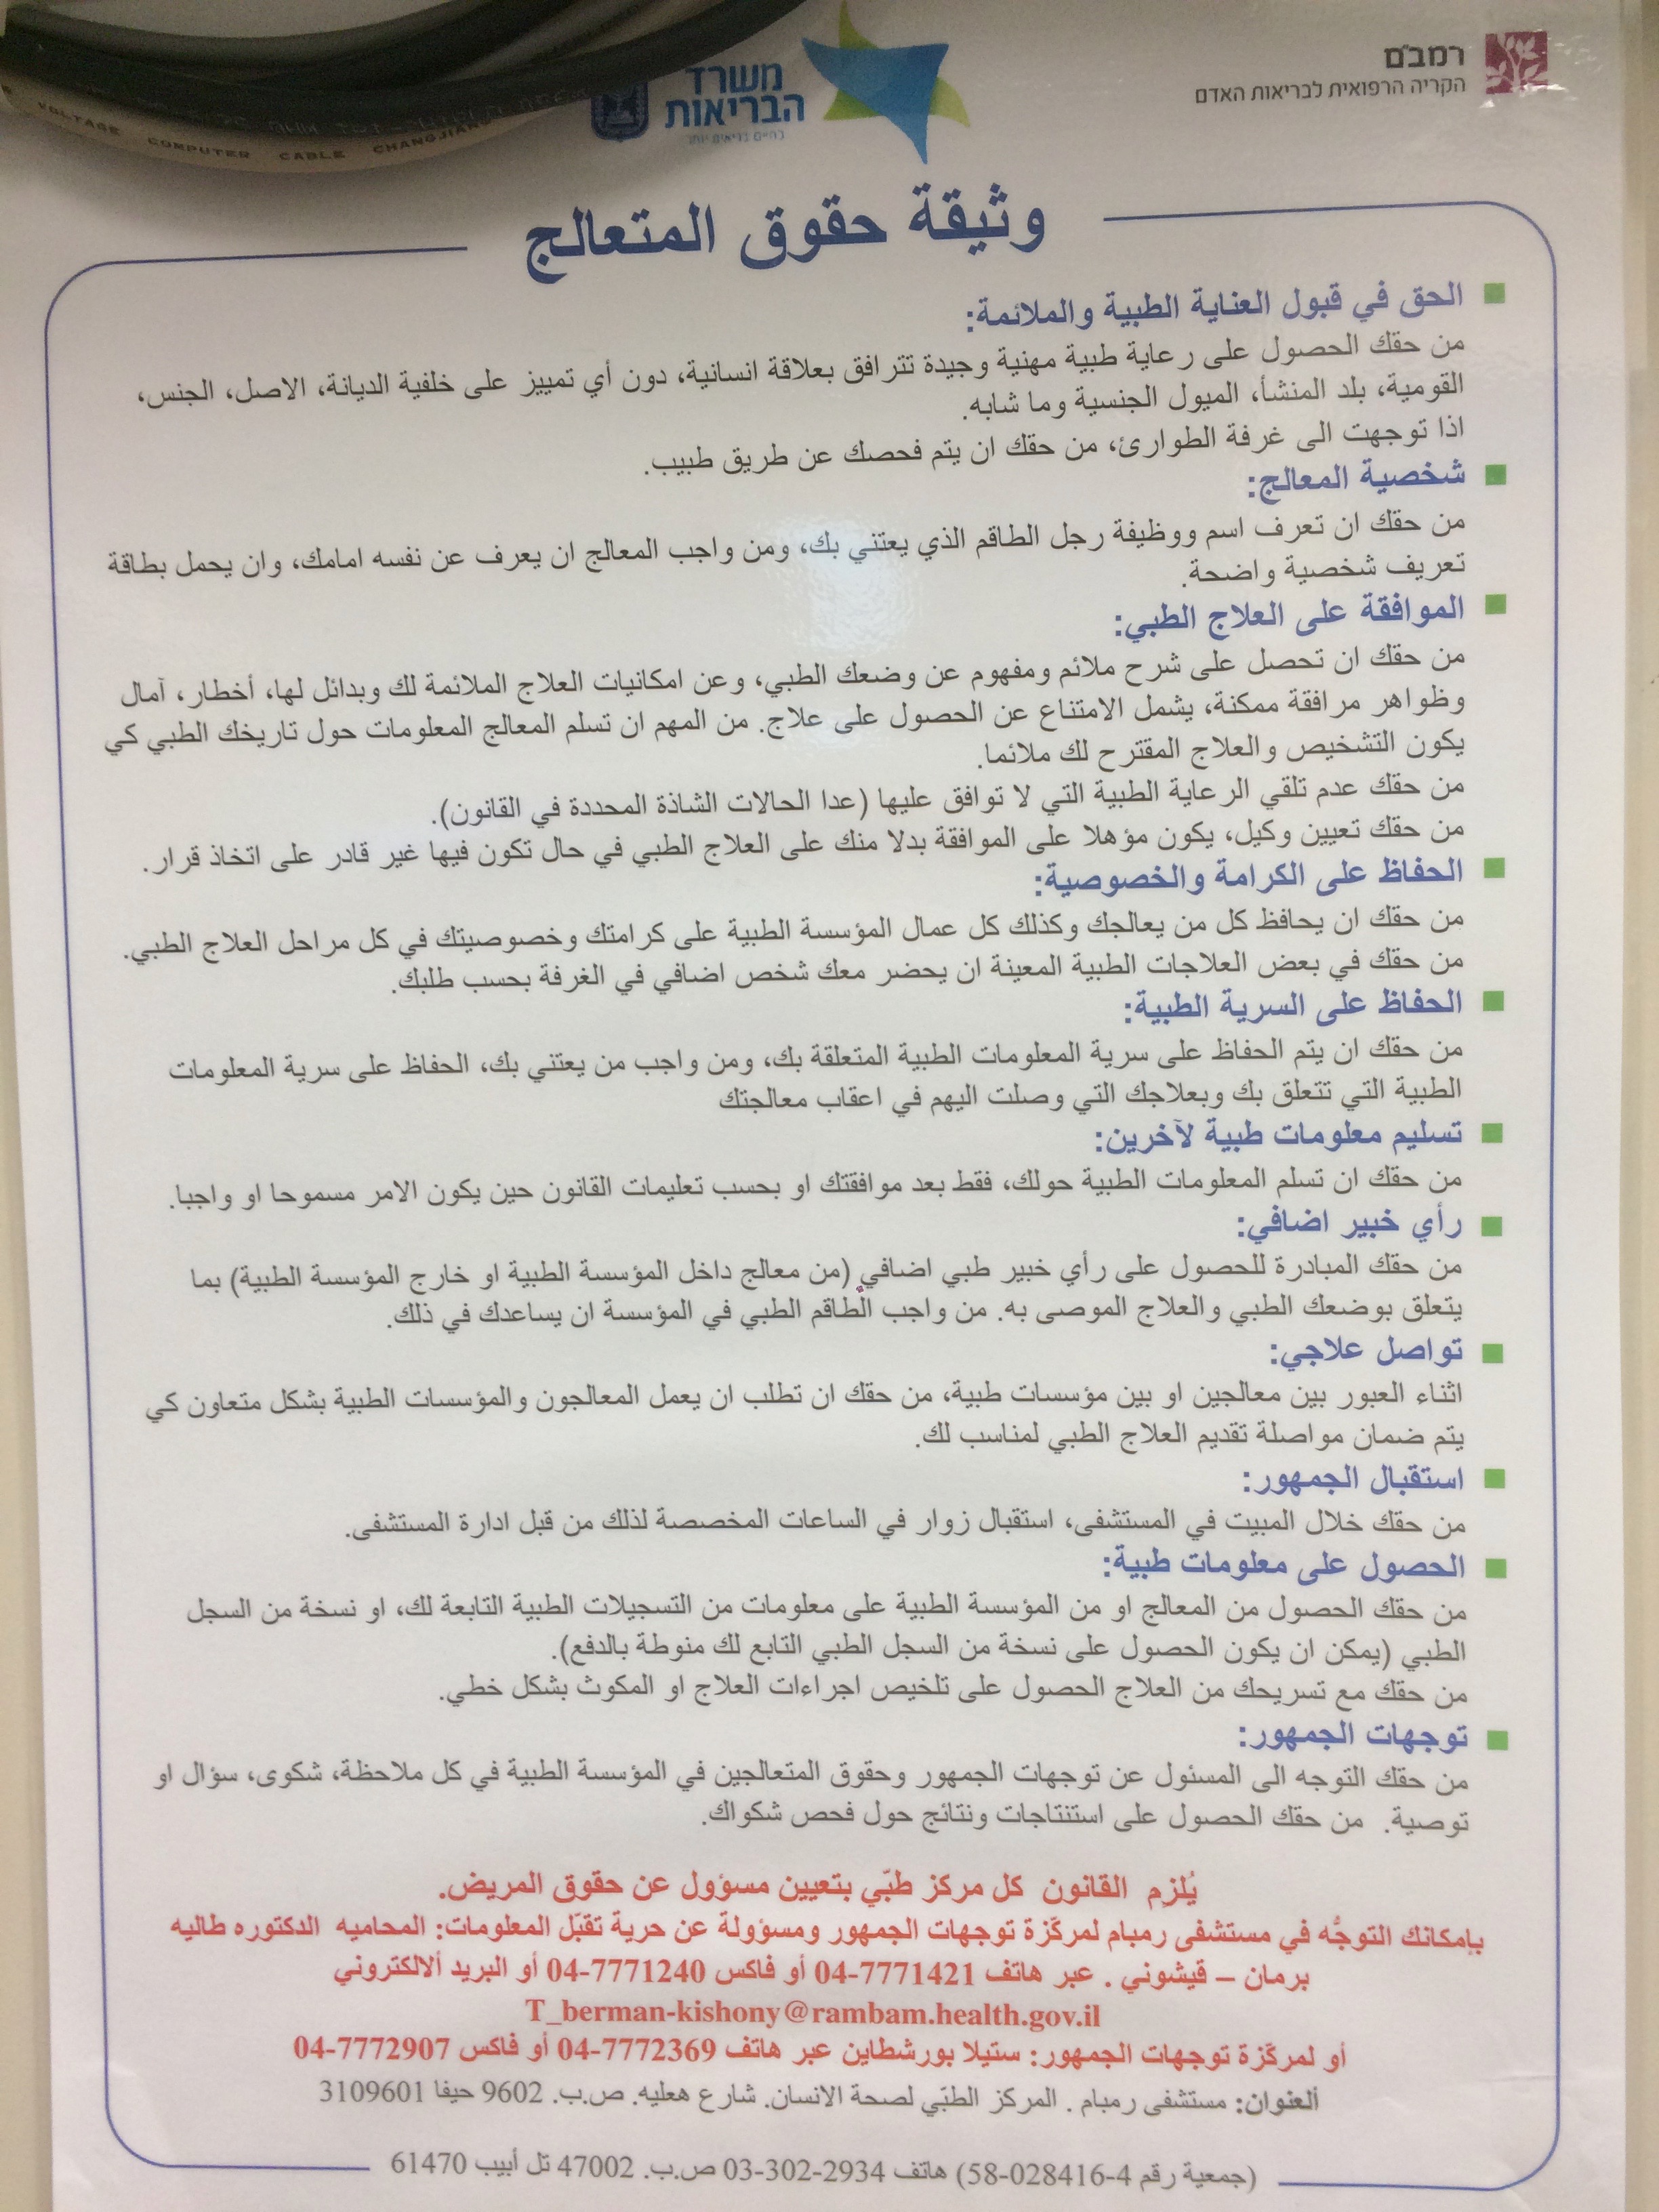 רמב"ם
הקריה הרפואית לבריאות האדם
משרד
הבריאות
לחיים בריאים יותר
VOLTAGE COMPUTER CABLE CHANGJIANG
وثيقة حقوق المتعالج
الحق في قبول العناية الطبية والملائمة:
من حقك الحصول على رعاية طبية مهنية وجيدة تترافق بعلاقة انسانية، دون أي تمييز على خلفية الديانة، الاصل، الجنس،
القومية، بلد المنشأ، الميول الجنسية وما شابه.
اذا توجهت الى غرفة الطوارئ، من حقك ان يتم فحصك عن طريق طبيب.
شخصية المعالج:
من حقك ان تعرف اسم ووظيفة رجل الطاقم الذي يعتني بك، ومن واجب المعالج ان يعرف عن نفسه امامك، وان يحمل بطاقة
تعريف شخصية واضحة.
الموافقة على العلاج الطبي:
من حقك ان تحصل على شرح ملائم ومفهوم عن وضعك الطبي، وعن امكانيات العلاج الملائمة لك وبدائل لها، أخطار، آمال
وظواهر مرافقة ممكنة، يشمل الامتناع عن الحصول على علاج. من المهم ان تسلم المعالج المعلومات حول تاريخك الطبي كي
يكون التشخيص والعلاج المقترح لك ملائما.
من حقك عدم تلقي الرعاية الطبية التي لا توافق عليها (عدا الحالات الشاذة المحددة في القانون).
من حقك تعيين وكيل، يكون مؤهلا على الموافقة بدلا منك على العلاج الطبي في حال تكون فيها غير قادر على اتخاذ قرار.
الحفاظ على الكرامة والخصوصية:
من حقك ان يحافظ كل من يعالجك وكذلك كل عمال المؤسسة الطبية على كرامتك وخصوصيتك في كل مراحل العلاج الطبي.
من حقك في بعض العلاجات الطبية المعينة ان يحضر معك شخص اضافي في الغرفة بحسب طلبك.
الحفاظ على السرية الطبية:
من حقك ان يتم الحفاظ على سرية المعلومات الطبية المتعلقة بك، ومن واجب من يعتني بك، الحفاظ على سرية المعلومات
الطبية التي تتعلق بك وبعلاجك التي وصلت اليهم في اعقاب معالجتك
تسليم معلومات طبية لآخرين:
من حقك ان تسلم المعلومات الطبية حولك، فقط بعد موافقتك او بحسب تعليمات القانون حين يكون الامر مسموحا او واجبا.
رأي خبير اضافي:
من حقك المبادرة للحصول على رأي خبير طبي اضافي (من معالج داخل المؤسسة الطبية او خارج المؤسسة الطبية) بما
يتعلق بوضعك الطبي والعلاج الموصى به. من واجب الطاقم الطبي في المؤسسة ان يساعدك في ذلك.
تواصل علاجي:
اثناء العبور بين معالجين او بين مؤسسات طبية، من حقك ان تطلب ان يعمل المعالجون والمؤسسات الطبية بشكل متعاون كي
يتم ضمان مواصلة تقديم العلاج الطبي لمناسب لك.
استقبال الجمهور:
من حقك خلال المبيت في المستشفى، استقبال زوار في الساعات المخصصة لذلك من قبل ادارة المستشفى.
الحصول على معلومات طبية:
من حقك الحصول من المعالج او من المؤسسة الطبية على معلومات من التسجيلات الطبية التابعة لك، او نسخة من السجل
الطبي (يمكن ان يكون الحصول على نسخة من السجل الطبي التابع لك منوطة بالدفع).
من حقك مع تسريحك من العلاج الحصول على تلخيص اجراءات العلاج او المكوث بشكل خطي.
توجهات الجمهور:
من حقك التوجه الى المسئول عن توجهات الجمهور وحقوق المتعالجين في المؤسسة الطبية في كل ملاحظة، شكوى، سؤال او
توصية. من حقك الحصول على استنتاجات ونتائج حول فحص شكواك.
يُلزِم القانون كل مركز طبّي بتعيين مسؤول عن حقوق المريض.
بإمكانك التوجُّه في مستشفى رمبام لمركّزة توجهات الجمهور ومسؤولة عن حرية تقبّل المعلومات: المحاميه الدكتوره طاليه
برمان – قيشوني . عبر هاتف 04-7771421 أو فاكس 04-7771240 أو البريد ألالكتروني
T_berman-kishony@rambam.health.gov.il
أو لمركّزة توجهات الجمهور: ستيلا بورشطاين عبر هاتف 04-7772369 أو فاكس 04-7772907
ألعنوان: مستشفى رمبام . المركز الطبّي لصحة الانسان. شارع هعليه. ص.ب. 9602 حيفا 3109601
(جمعية رقم 58-028416-4) هاتف 03-302-2934 ص.ب. 47002 تل أبيب 61470